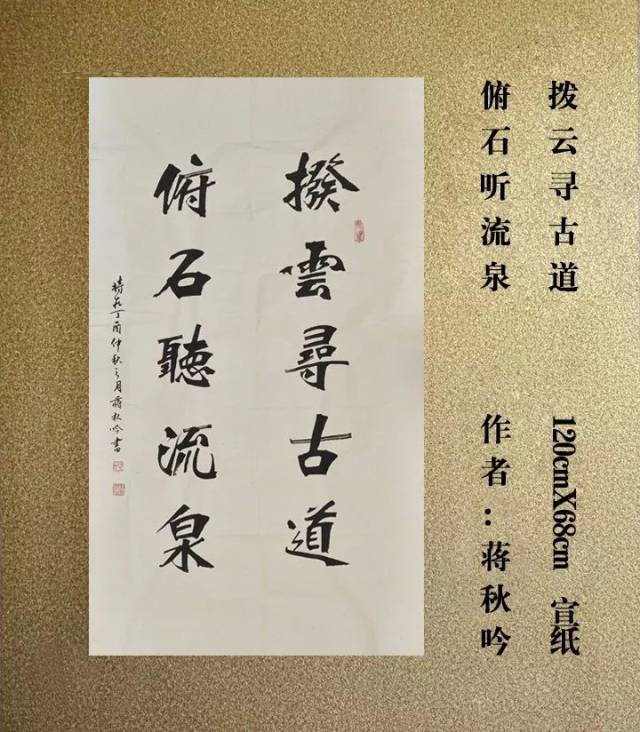 撥雲尋古道
俯石聽流泉
時在丁酉仲秋之月蔣秋吟書
拨云寻古道
俯石听流泉
120cmX68cm 宣纸
作者：蒋秋吟